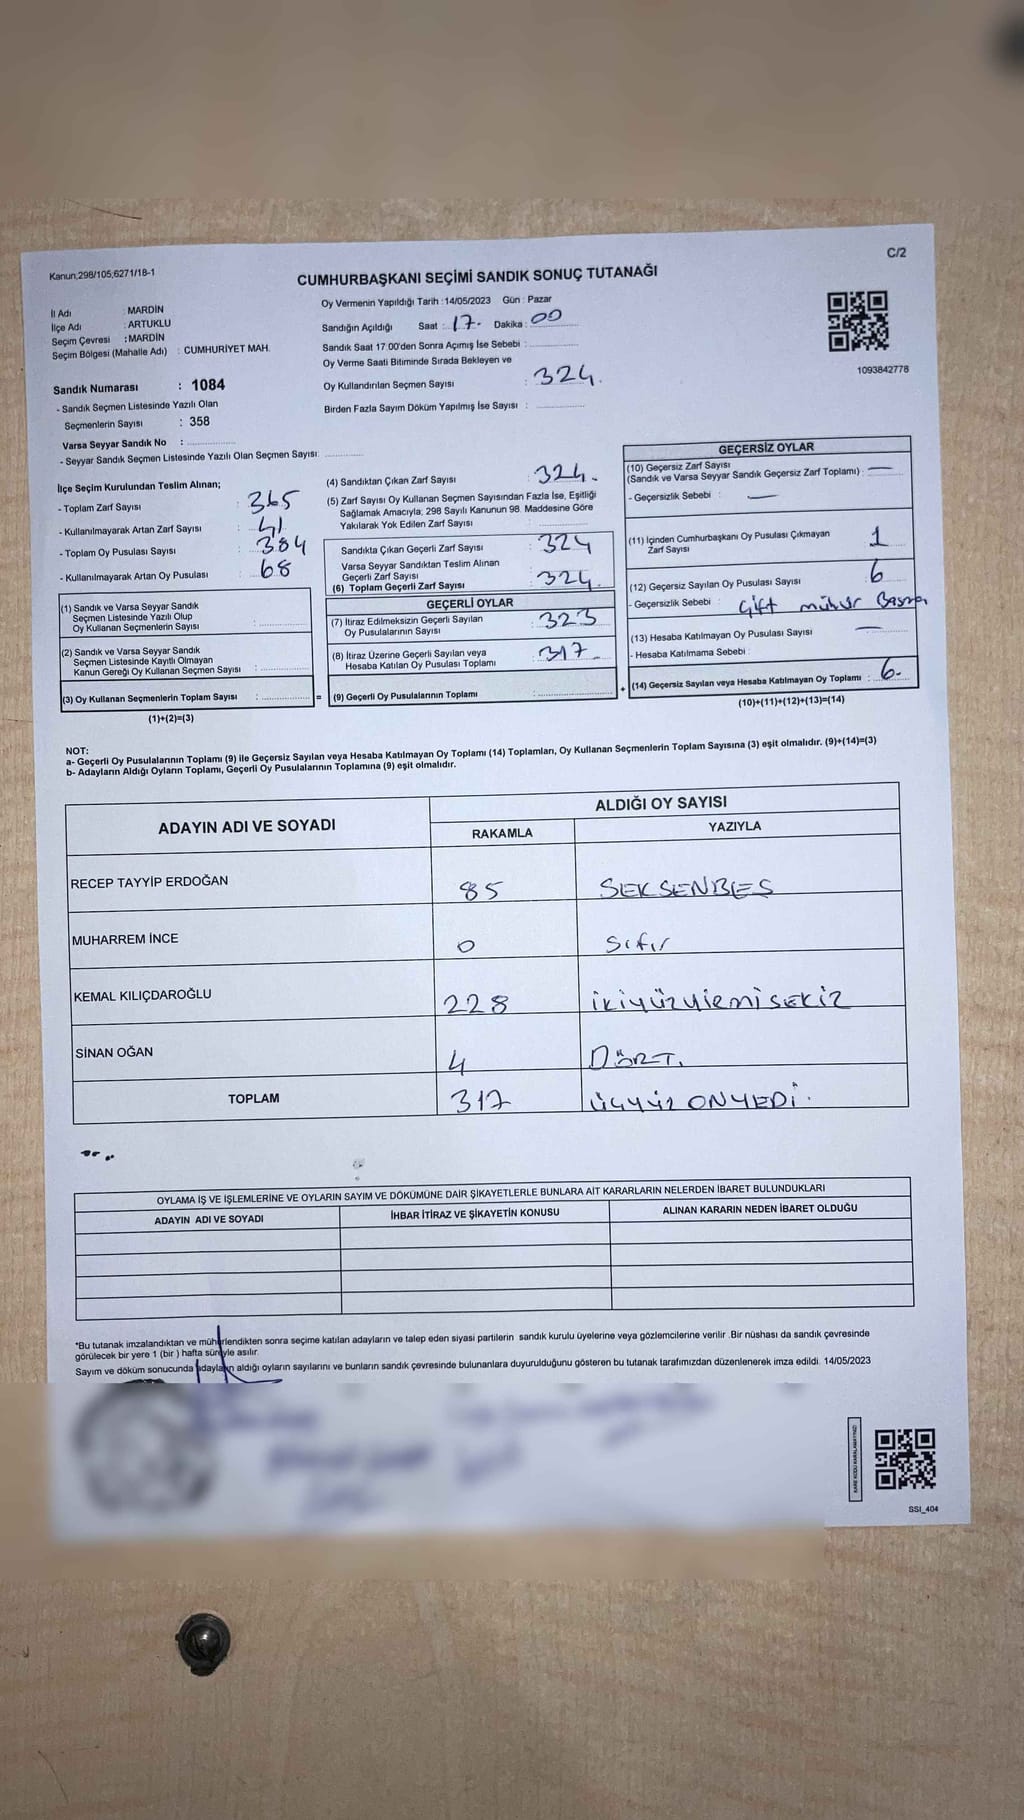 C/2
Kanun,298/105;6271/18-1
CUMHURBAŞKANI SEÇİMİ SANDIK SONUÇ TUTANAĞI
İl Adı : MARDİN
İlçe Adı : ARTUKLU
Seçim Çevresi : MARDİN
Seçim Bölgesi (Mahalle Adı) : CUMHURİYET MAH.
Sandık Numarası : 1084
- Sandık Seçmen Listesinde Yazılı Olan
Seçmenlerin Sayısı : 358
Varsa Seyyar Sandık No :
- Seyyar Sandık Seçmen Listesinde Yazılı Olan Seçmen Sayısı:
Oy Vermenin Yapıldığı Tarih :14/05/2023 Gün : Pazar
Sandığın Açıldığı Saat : 17. Dakika : 00
Sandık Saat 17:00'den Sonra Açımış İse Sebebi :
Oy Verme Saati Bitiminde Sırada Bekleyen ve
Oy Kullandırılan Seçmen Sayısı : 324.
Birden Fazla Sayım Döküm Yapılmış İse Sayısı :
1093842778
İlçe Seçim Kurulundan Teslim Alınan;
- Toplam Zarf Sayısı : 365
- Kullanılmayarak Artan Zarf Sayısı : 41
- Toplam Oy Pusulası Sayısı : 384
- Kullanılmayarak Artan Oy Pusulası : 68
(1) Sandık ve Varsa Seyyar Sandık
Seçmen Listesinde Yazılı Olup
Oy Kullanan Seçmenlerin Sayısı :
(2) Sandık ve Varsa Seyyar Sandık
Seçmen Listesinde Kayıtlı Olmayan
Kanun Gereği Oy Kullanan Seçmen Sayısı :
(3) Oy Kullanan Seçmenlerin Toplam Sayısı : =
(1)+(2)=(3)
(4) Sandıktan Çıkan Zarf Sayısı : 324.
(5) Zarf Sayısı Oy Kullanan Seçmen Sayısından Fazla İse, Eşitliği
Sağlamak Amacıyla; 298 Sayılı Kanunun 98. Maddesine Göre
Yakılarak Yok Edilen Zarf Sayısı :
Sandıkta Çıkan Geçerli Zarf Sayısı : 324
Varsa Seyyar Sandıktan Teslim Alınan
Geçerli Zarf Sayısı :
(6) Toplam Geçerli Zarf Sayısı : 324.
GEÇERLİ OYLAR
(7) İtiraz Edilmeksizin Geçerli Sayılan
Oy Pusulalarının Sayısı : 323
(8) İtiraz Üzerine Geçerli Sayılan veya
Hesaba Katılan Oy Pusulası Toplamı : 317.
(9) Geçerli Oy Pusulalarının Toplamı : +
GEÇERSİZ OYLAR
(10) Geçersiz Zarf Sayısı
(Sandık ve Varsa Seyyar Sandık Geçersiz Zarf Toplamı) : —
- Geçersizlik Sebebi : —
(11) İçinden Cumhurbaşkanı Oy Pusulası Çıkmayan
Zarf Sayısı : 1
(12) Geçersiz Sayılan Oy Pusulası Sayısı : 6
- Geçersizlik Sebebi : Çift mühür Basma
(13) Hesaba Katılmayan Oy Pusulası Sayısı : —
- Hesaba Katılmama Sebebi :
(14) Geçersiz Sayılan veya Hesaba Katılmayan Oy Toplamı : 6.
(10)+(11)+(12)+(13)=(14)
NOT:
a- Geçerli Oy Pusulalarının Toplamı (9) ile Geçersiz Sayılan veya Hesaba Katılmayan Oy Toplamı (14) Toplamları, Oy Kullanan Seçmenlerin Toplam Sayısına (3) eşit olmalıdır. (9)+(14)=(3)
b- Adayların Aldığı Oyların Toplamı, Geçerli Oy Pusulalarının Toplamına (9) eşit olmalıdır.
ADAYIN ADI VE SOYADI ALDIĞI OY SAYISI
RAKAMLA YAZIYLA
RECEP TAYYİP ERDOĞAN 85 SEKSENBEŞ
MUHARREM İNCE 0 Sıfır
KEMAL KILIÇDAROĞLU 228 İKİYÜZYİRMİSEKİZ
SİNAN OĞAN 4 DÖRT.
TOPLAM 317 ÜÇYÜZ ONYEDİ.
OYLAMA İŞ VE İŞLEMLERİNE VE OYLARIN SAYIM VE DÖKÜMÜNE DAİR ŞİKAYETLERLE BUNLARA AİT KARARLARIN NELERDEN İBARET BULUNDUKLARI
ADAYIN ADI VE SOYADI İHBAR İTİRAZ VE ŞİKAYETİN KONUSU ALINAN KARARIN NEDEN İBARET OLDUĞU
*Bu tutanak imzalandıktan ve mühürlendikten sonra seçime katılan adayların ve talep eden siyasi partilerin sandık kurulu üyelerine veya gözlemcilerine verilir .Bir nüshası da sandık çevresinde
görülecek bir yere 1 (bir ) hafta süreyle asılır.
Sayım ve döküm sonucunda adayların aldığı oyların sayılarını ve bunların sandık çevresinde bulunanlara duyurulduğunu gösteren bu tutanak tarafımızdan düzenlenerek imza edildi. 14/05/2023
KARE KODU KARALAMAYINIZ!
SSI_404